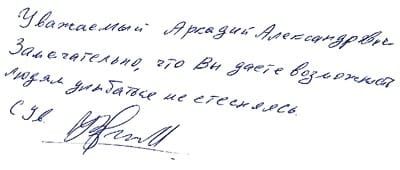 Уважаемый Аркадий Александрович
Замечательно, что Вы даете возможность
людям улыбаться не стесняясь.
С Ув.